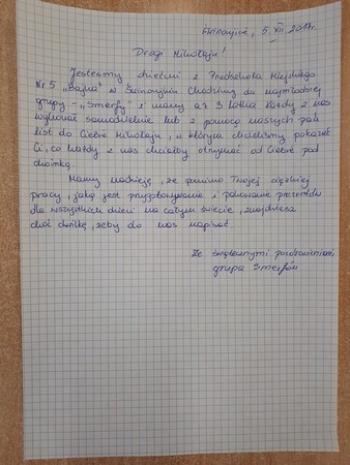 5 XII 2017r.
Drogi Mikołaju!
Jesteśmy dziećmi z Przedszkola Miejskiego
Nr 5 „Bajka" w Świnoujściu. Chodzimy do najmłodszej
grupy - „Smerfy" i mamy aż 3 latka. Każdy z nas
wykonał samodzielnie lub z pomocą naszych pań
list do Ciebie Mikołaju, w którym chcieliśmy pokazać
Ci, co każdy z nas chciałby otrzymać od Ciebie pod
choinkę.
Mamy nadzieję, że pomimo Twojej ciężkiej
pracy, jaką jest przygotowywanie i pakowanie prezentów
dla wszystkich dzieci na całym świecie, znajdziesz
choć chwilkę, żeby do nas napisać.
Ze świątecznymi pozdrowieniami
grupa Smerfów